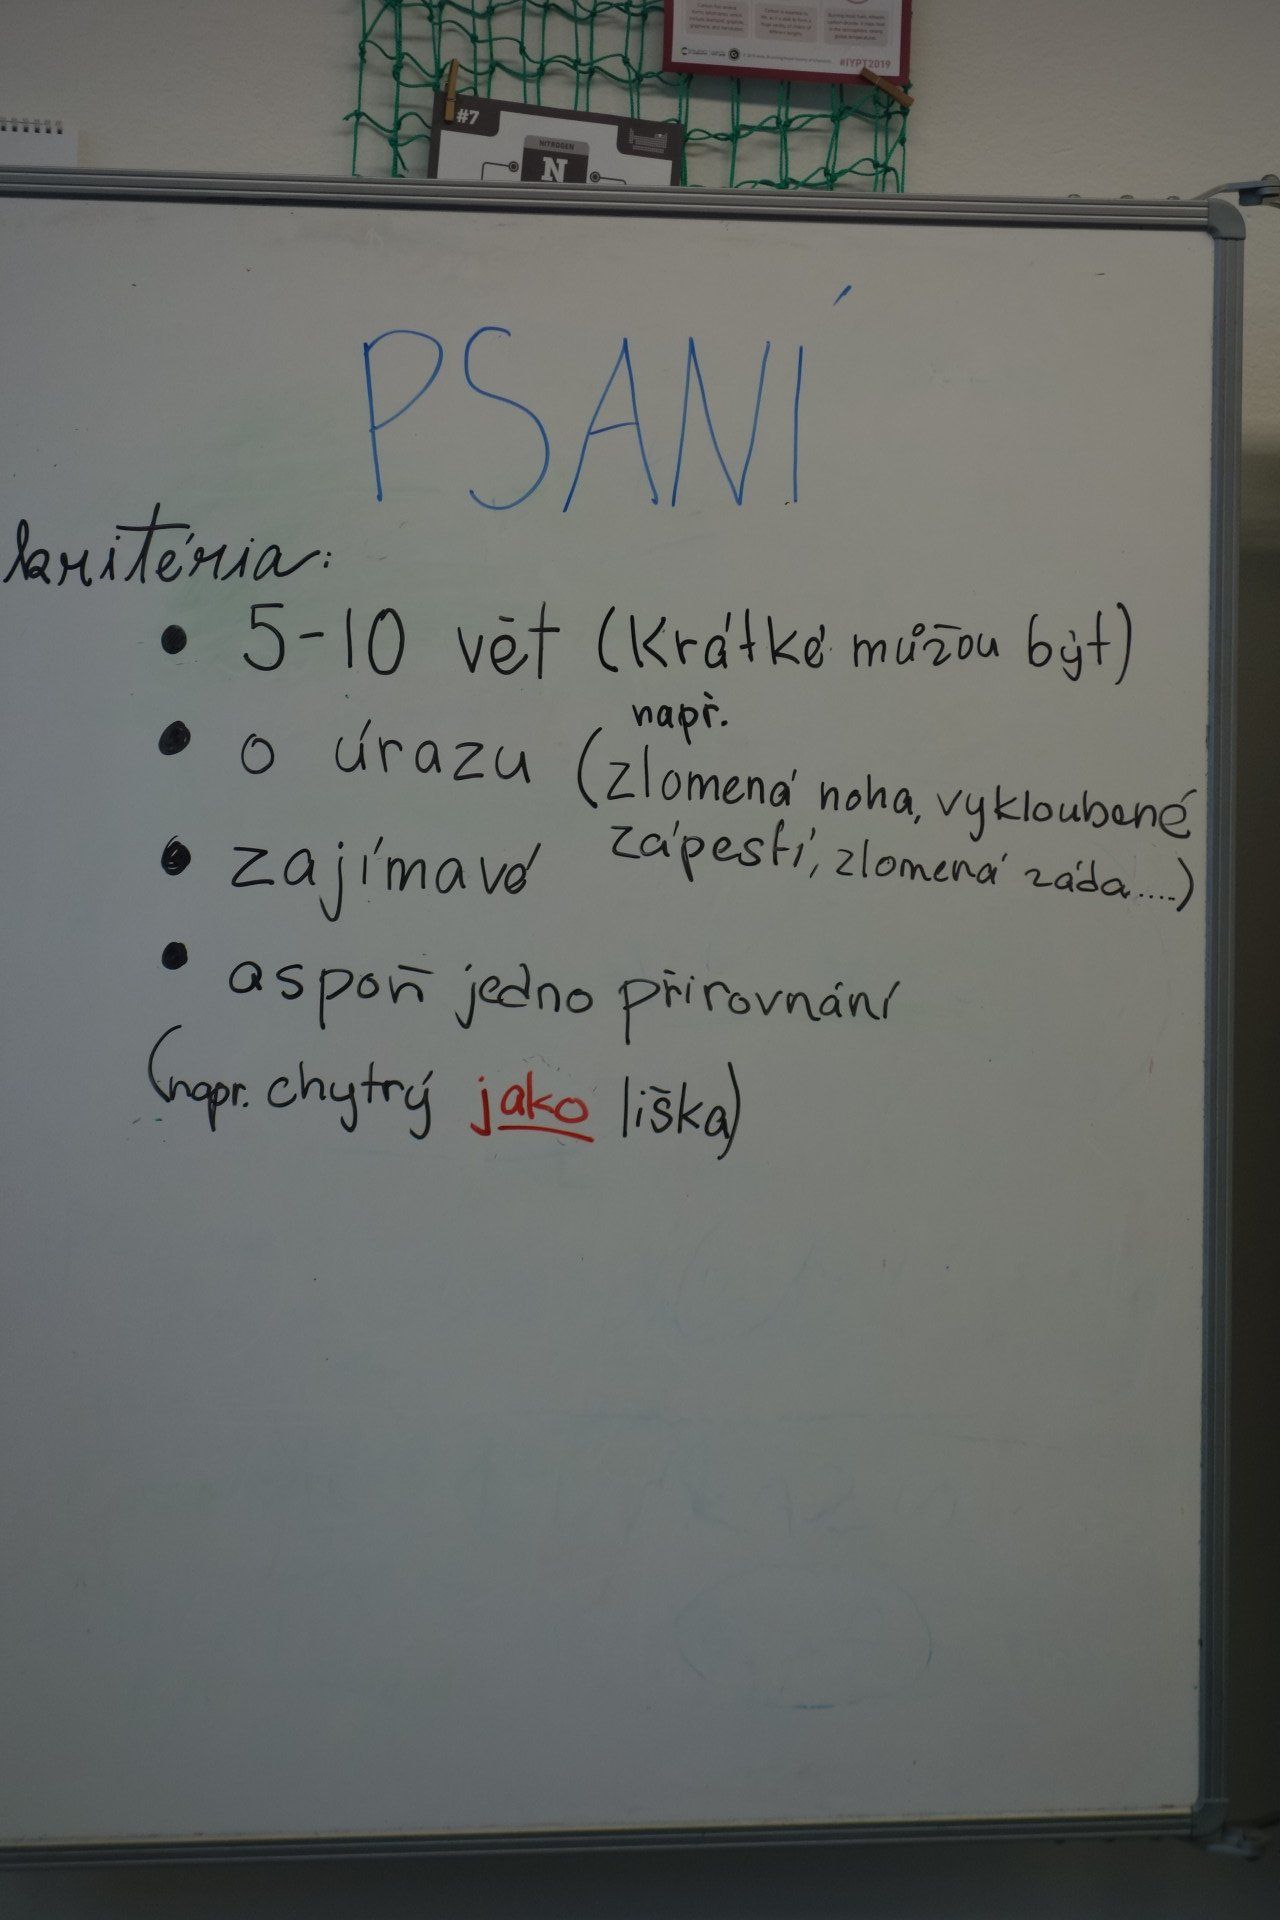 #IYPT2019
#7
NITROGEN
N
PSANÍ
kritéria:
• 5-10 vět (Krátké můžou být)
• o úrazu (např. zlomená noha, vykloubené
zápestí, zlomená záda....)
• zajímavé
• aspoň jedno přirovnání
(např. chytrý jako liška)